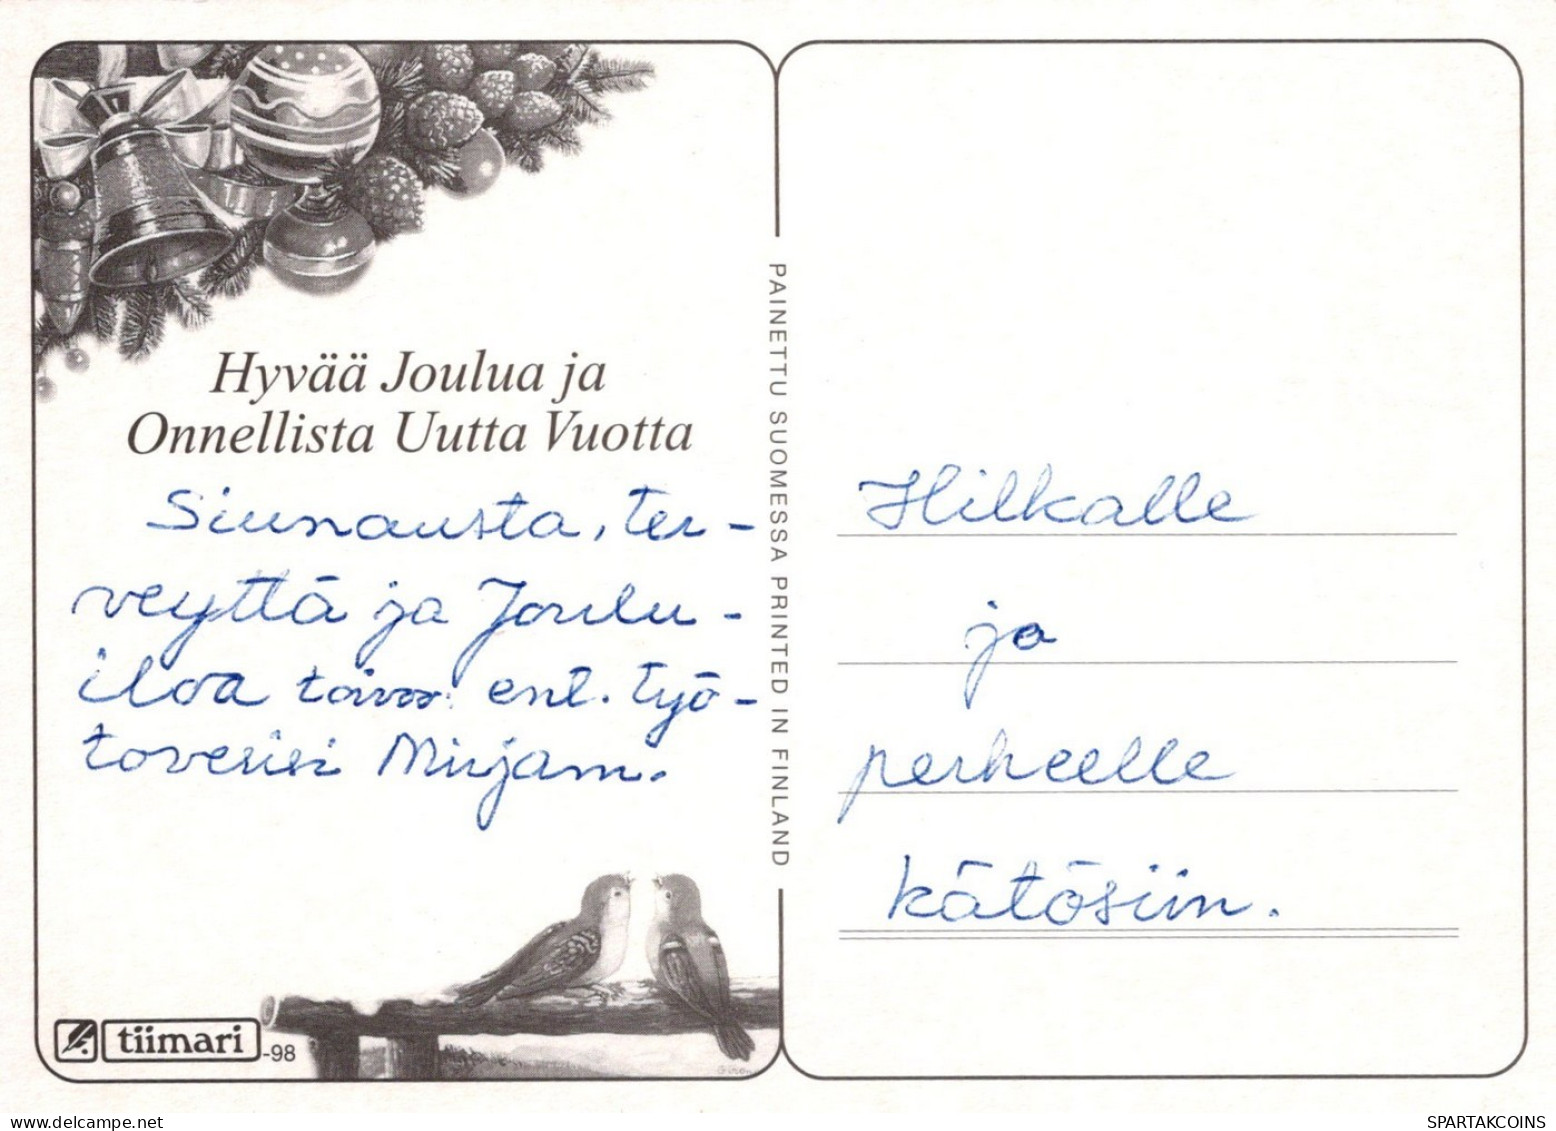 Hyvää Joulua ja
Onnellista Uutta Vuotta
Siunausta, ter-
veyttä ja Joulu-
iloa toivoo ent. työ-
toverisi Mirjam.
tiimari -98
PAINETTU SUOMESSA PRINTED IN FINLAND
Hilkalle
ja
perheelle
kätösiin.
SPARTAKCOINS